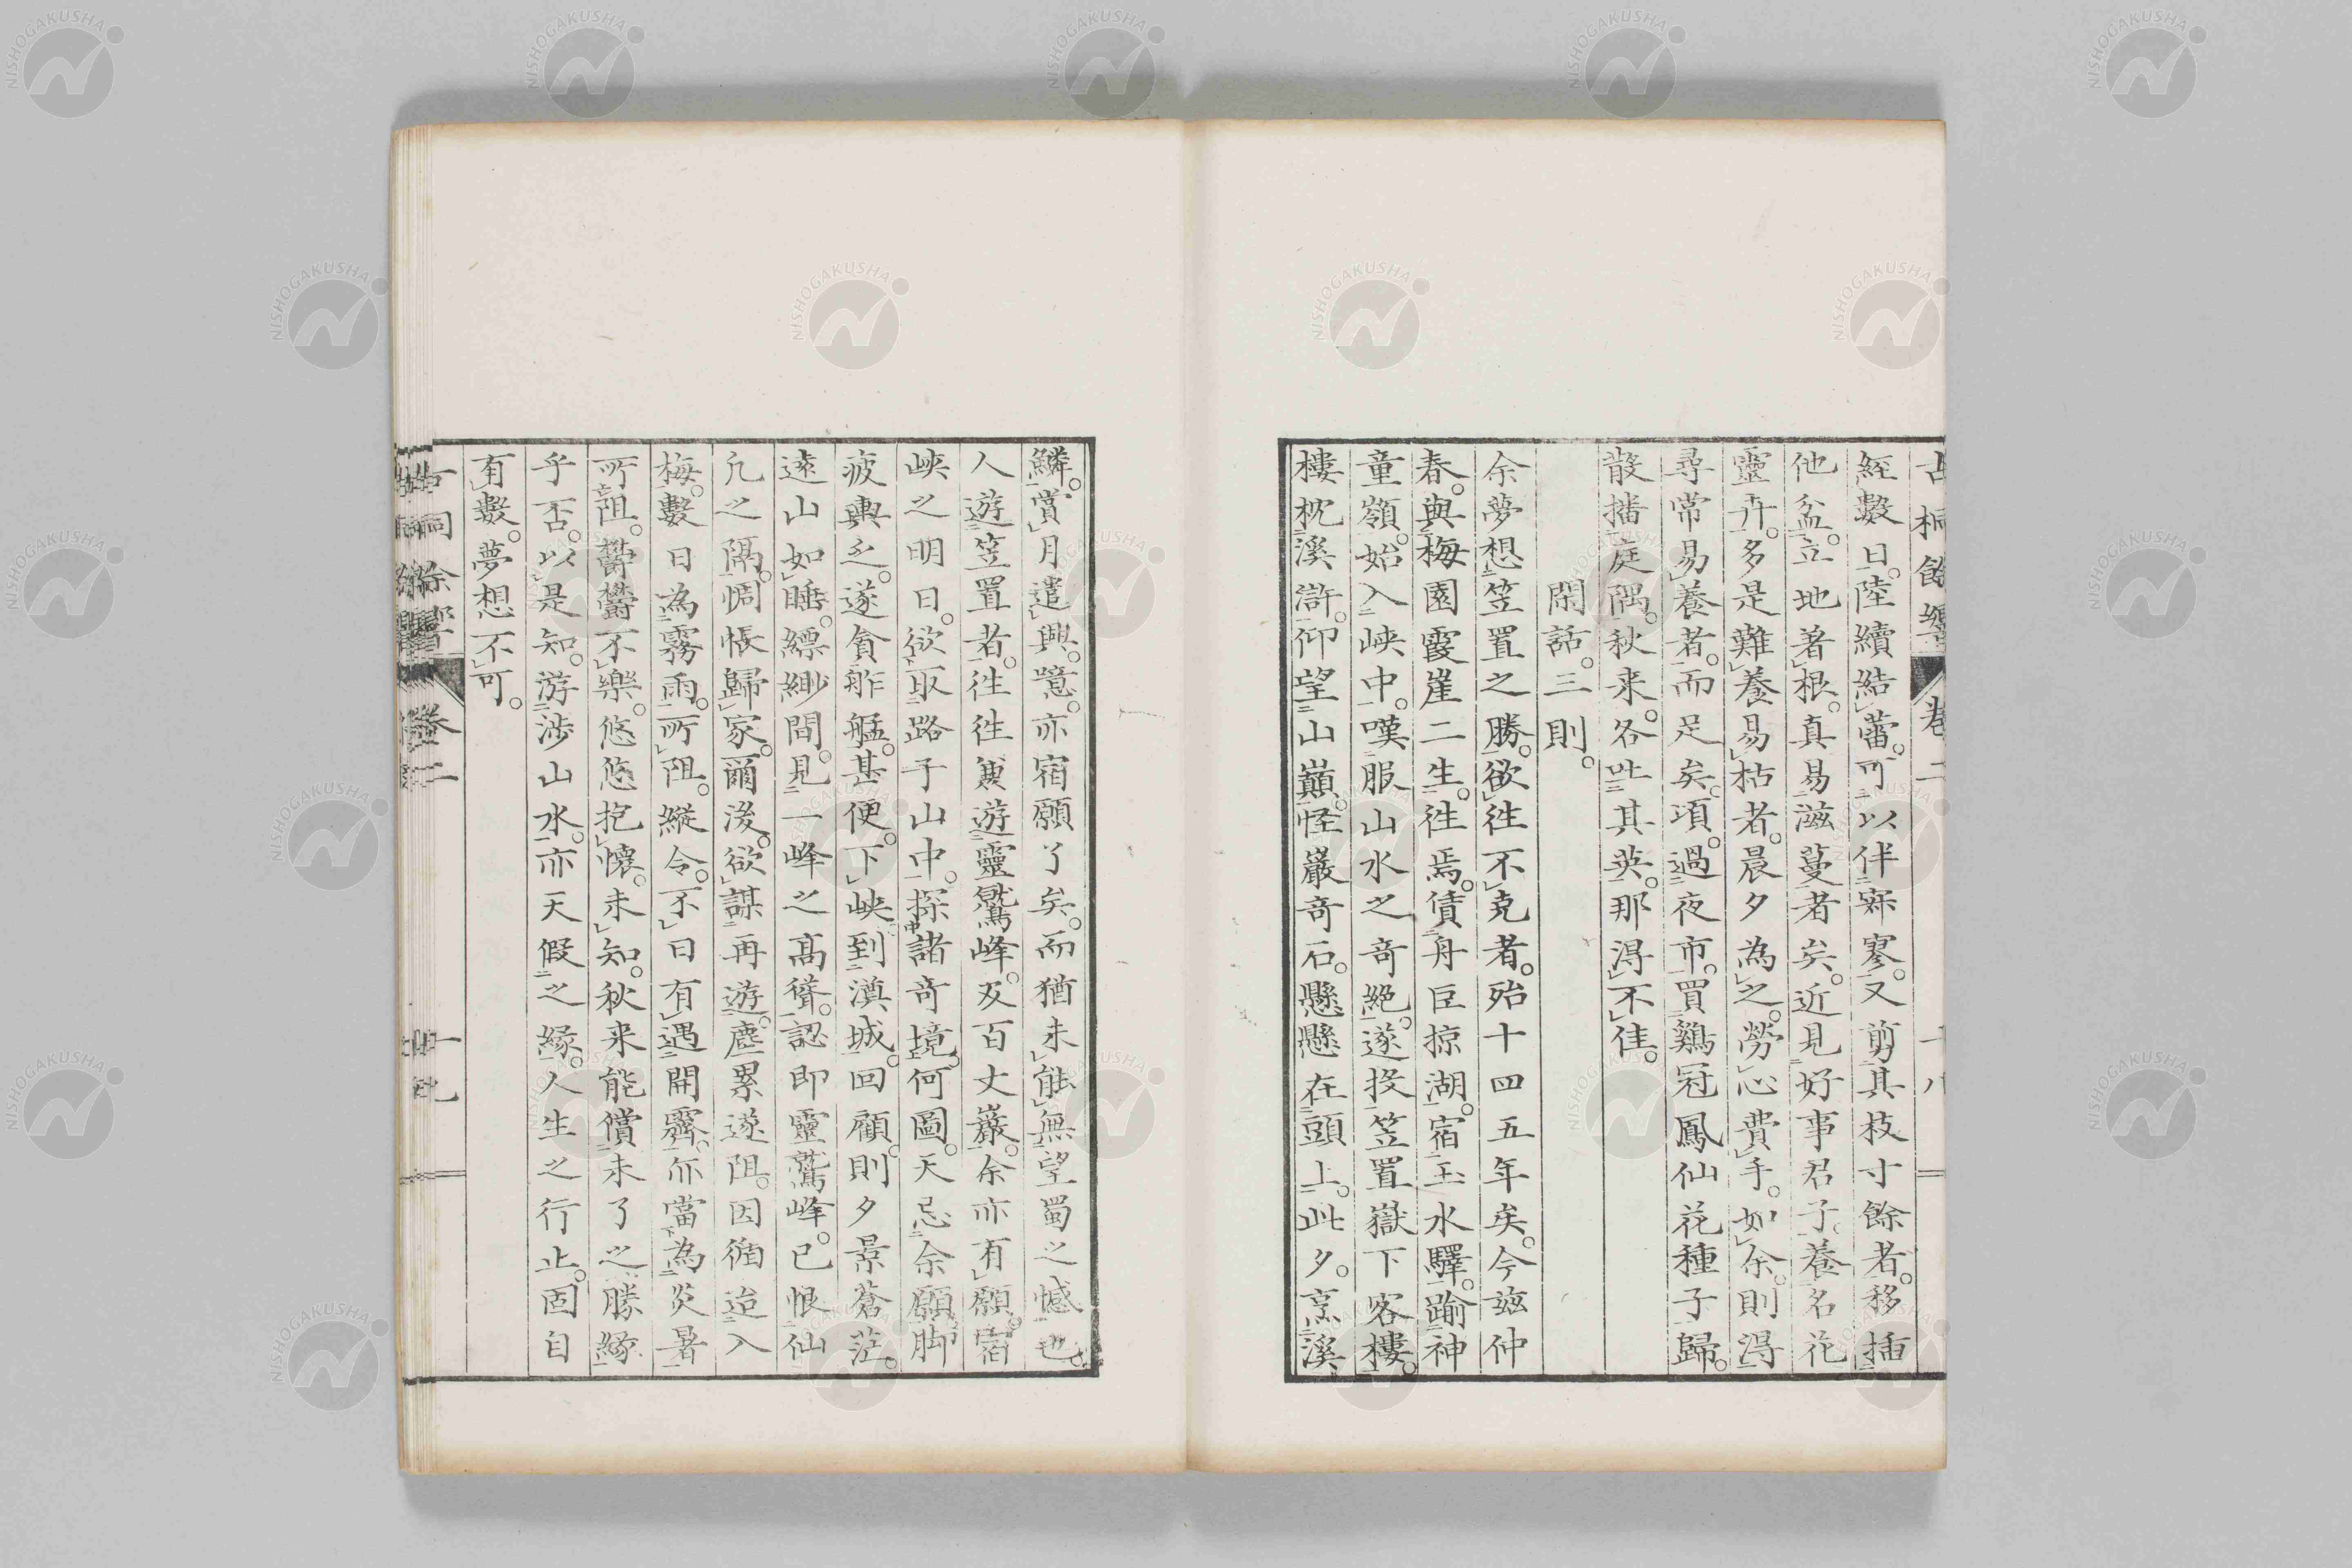 古桐餘響 卷二 十八
經數日。陸續結蕾。可以伴寂寥。又剪其枝寸餘者。移插
他盆。立地著根。真易滋蔓者矣。近見好事君子。養名花
靈卉。多是難養易枯者。晨夕為之。勞心費手。如余。則得
尋常易養者。而足矣。項。過夜市。買鷄冠鳳仙花種子歸。
散播庭隅。秋来。各吐其英。那得不佳。
閑話。三則。
余夢想笠置之勝。欲往不克者。殆十四五年矣。今玆仲
春。與梅園霞崖二生。往焉。僨舟巨掠湖。宿玉水驛。踰神
童嶺。始入峡中。嘆服山水之奇絕。遂投笠置嶽下客樓。
樓枕溪滸。仰望山巔。怪巖奇石。懸懸在頭上。此夕。烹溪
鱗。賞月遣興。噫。亦宿願了矣。而猶未能無望蜀之憾也。
人遊笠置者。往往兼游靈鷲峰。及百丈巖。余亦有願。宿
峡之明日。欲取路于山中。探諸奇境。何圖。天忌余願。脚
疲輿乏。遂貪舴艋。甚便。下峡到澳城。回顧。則夕景蒼茫。
遠山如睡。縹緲間。見一峰之高聳。認即靈鷲峰。已恨仙
凡之隔。惆悵歸家。爾後。欲謀再遊。塵累遂阻。因循迨入
梅。數日為霧雨。所阻。縱令。不日有遇開霽。亦當為炎暑
所阻。鬱鬱不樂。悠悠抱懷。未知。秋来能償未了之勝緣
乎否。以是知。游涉山水。亦天假之緣。人生之行止。固自
有數。夢想不可。
古桐餘響 卷二